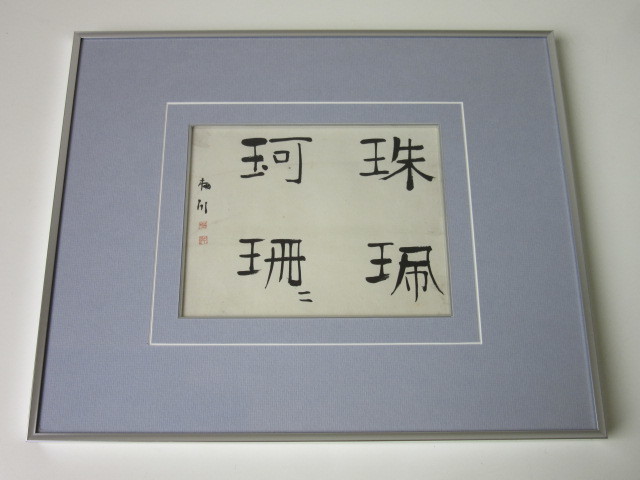 珠珮
珂珊二